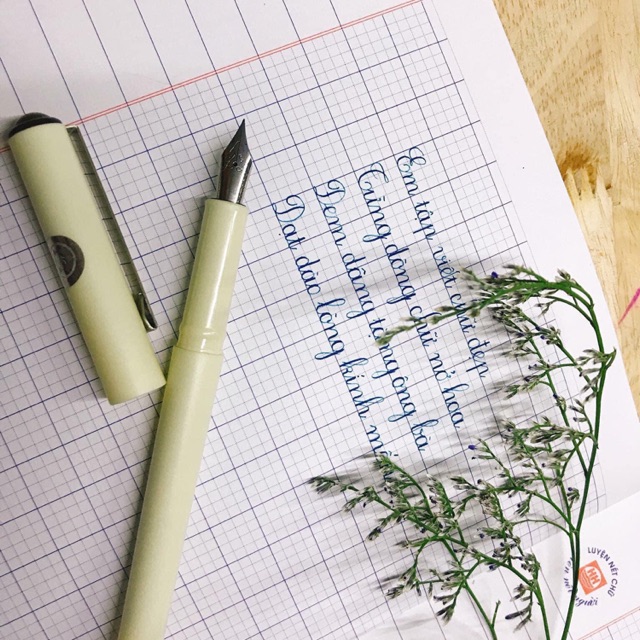 Em tập viết chữ đẹp
Từng dòng chữ nở hoa
Đem dâng tặng ông bà
Dạt dào lòng kính
LUYỆN NÉT CHỮ
người